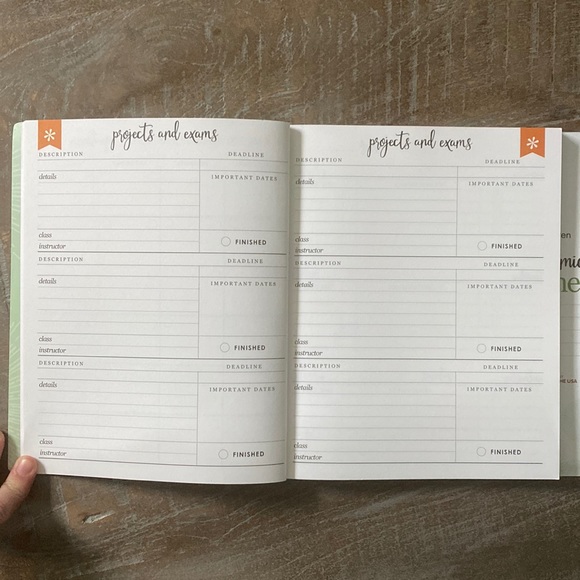 projects and exams
DESCRIPTION DEADLINE
details IMPORTANT DATES
class
instructor FINISHED
DESCRIPTION DEADLINE
details IMPORTANT DATES
class
instructor FINISHED
DESCRIPTION DEADLINE
details IMPORTANT DATES
class
instructor FINISHED
projects and exams
DESCRIPTION DEADLINE
details IMPORTANT DATES
class
instructor FINISHED
DESCRIPTION DEADLINE
details IMPORTANT DATES
class
instructor FINISHED
DESCRIPTION DEADLINE
details IMPORTANT DATES
class
instructor FINISHED
THE USA